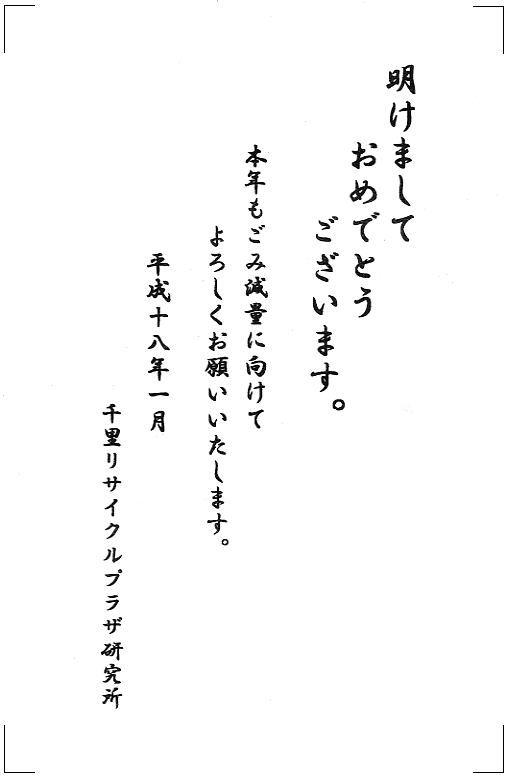 明けまして
おめでとう
ございます。
本年もごみ減量に向けて
よろしくお願いいたします。
平成十八年一月
千里リサイクルプラザ研究所